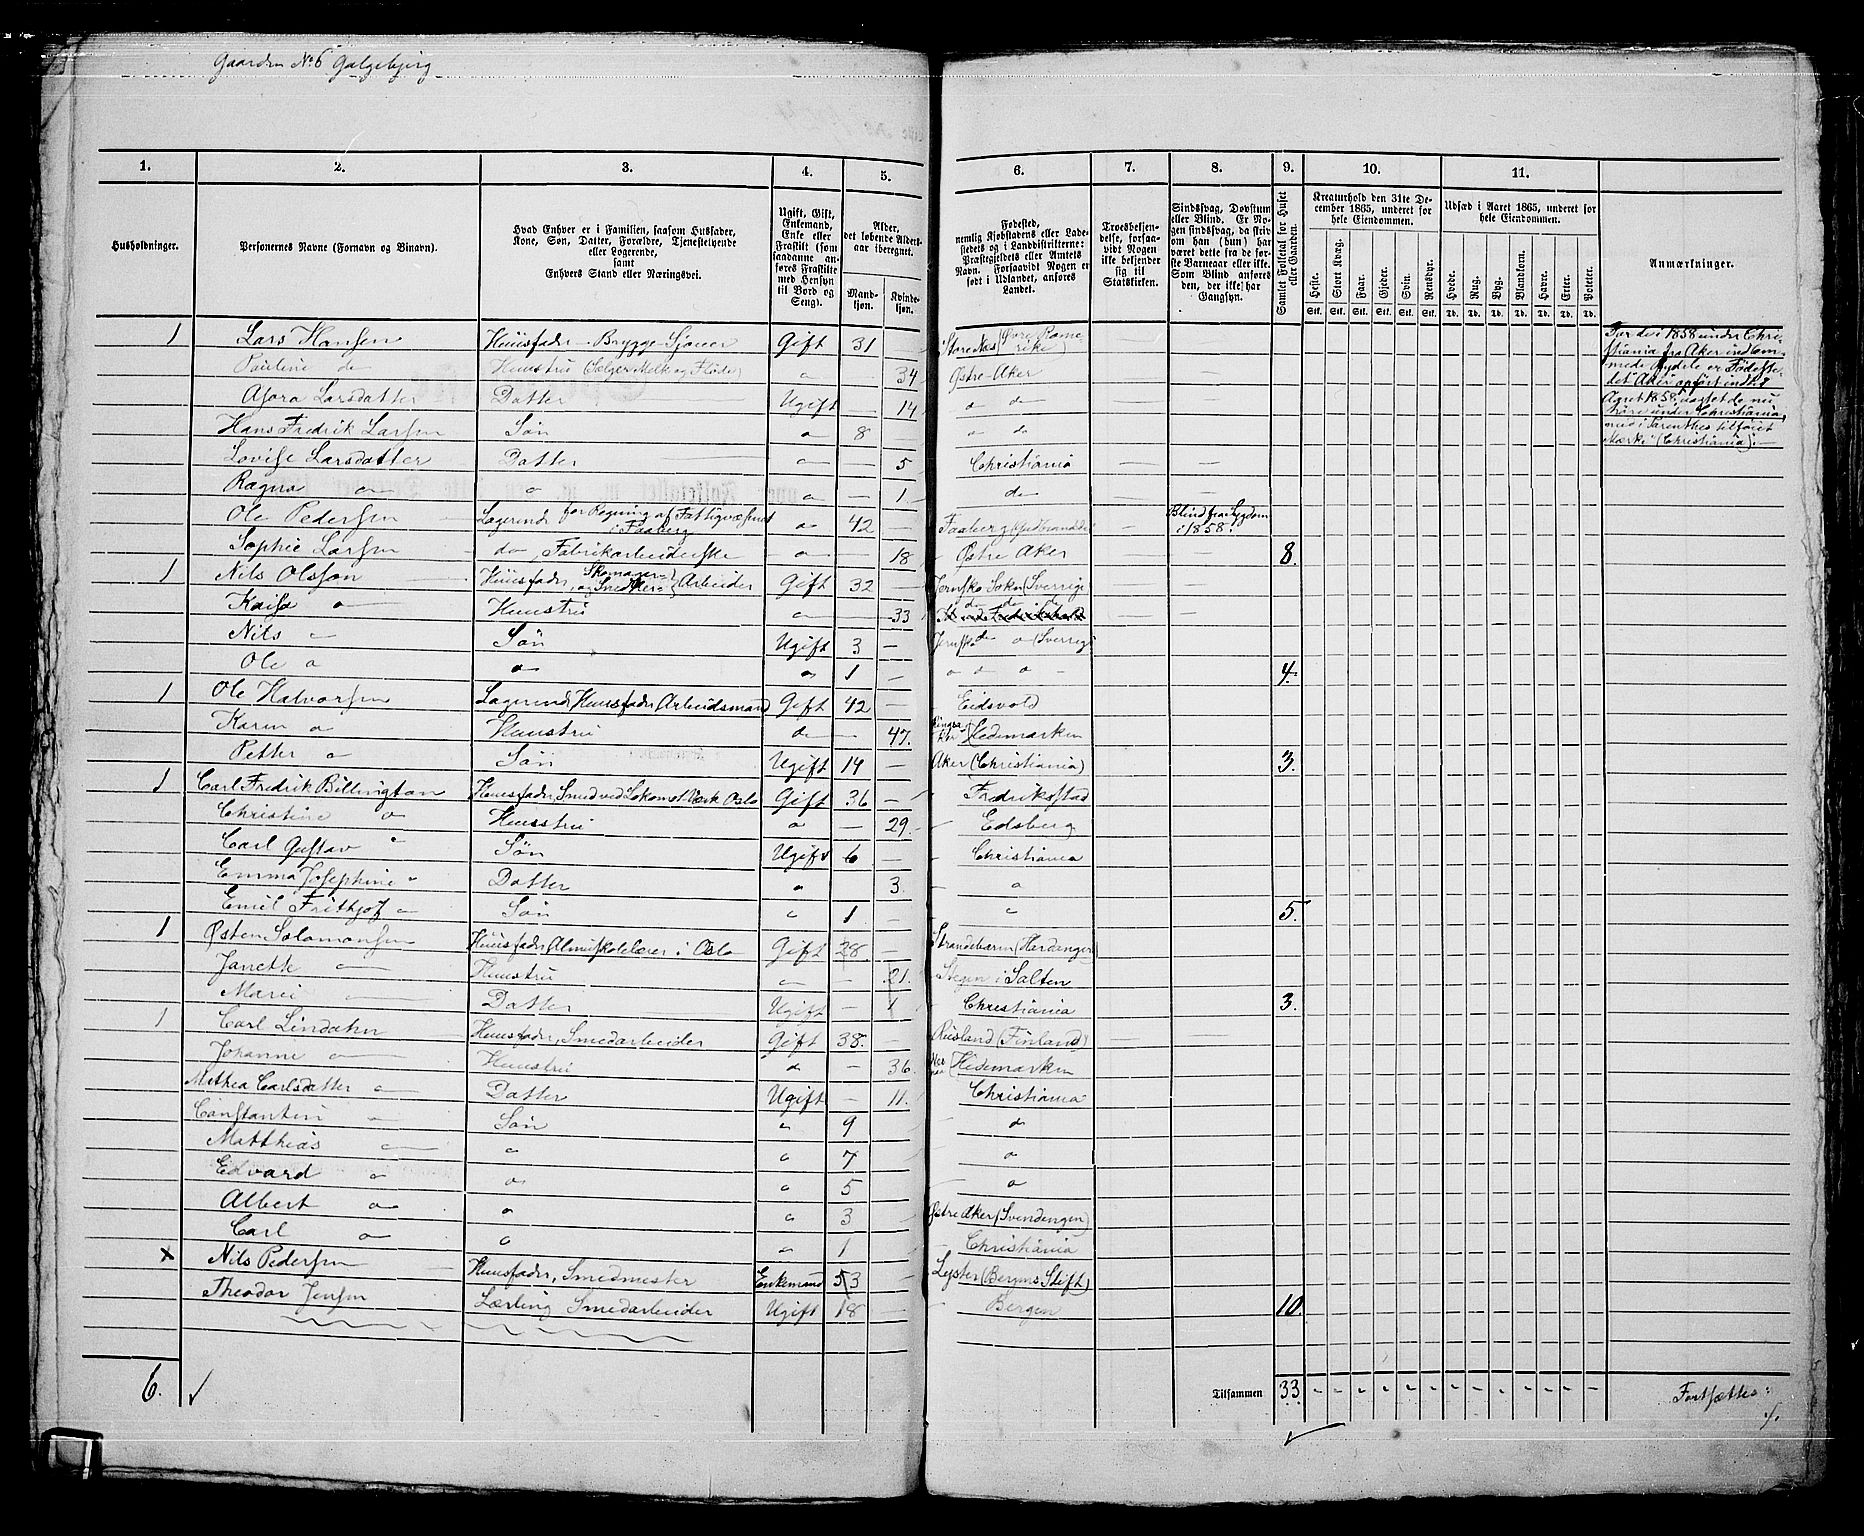 Gaarden No 6 Galgebjerg
1. 2. 3. 4. 5. 6. 7. 8. 9. 10. 11.
Husholdninger.
Personernes Navne (Fornavn og Binavn).
Hvad Enhver er i Familien, saasom Husfader,
Kone, Søn, Datter, Forældre, Tjenestetyende
eller Logerende,
samt
Enhvers Stand eller Næringsvei.
Ugift, Gift,
Enkemand,
Enke eller
Fraskilt (som
saadanne an-
føres Fraskilte
med Hensyn
til Bord og
Seng).
Alder,
det løbende Alders-
aar iberegnet.
Mand-
kjøn.
Kvinde-
kjøn.
Fødested,
nemlig Kjøbstadens eller La-
destedets og i Landdistrikterne:
Præstegjeldets eller Amtets
Navn. Forsaavidt Nogen er
født i Udlandet, anføres
Landet.
Troesbekjen-
delse, forsaa-
vidt Nogen
ikke bekjender
sig til
Statskirken.
Sindssvag, Døvstum
eller Blind. Er No-
gen sindssvag, da skriv
om han (hun) har
været dette fra de før-
ste Barneaar eller ikke.
Som Blind anføres
den, der ikke har
Gangsyn.
Samlet Folketal for Huset
eller Gaarden.
Kreaturhold den 31te De-
cember 1865, underet for
hele Eiendommen.
Heste. Stort Kvæg. Faar. Gjeder. Svin. Rensdyr.
Stk. Stk. Stk. Stk. Stk. Stk.
Udsæd i Aaret 1865, underet for
hele Eiendommen.
Hvede. Rug. Byg. Blandkorn. Havre. Erter. Poteter.
Td. Td. Td. Td. Td. Td. Td.
Anmærkninger.
1 Lars Hansen Huusfader - Brygge-Sjouer Gift 31 Store Næs (Øvre Rome-
rike
Pauline do Huustru (Sælger Melk og Fløde) " 34 Østre-Aker
Larsdatter Datter Ugift 14 " do
Hans Fredrik Larsen Søn " 8 " do
Lovise Larsdatter Datter " 5 Christiania
Ragna " " " 1 do
Ole Pedersen Logerende for Regning af Fattigvæsnet
i Faaberg " 42 Faaberg Blind fra Sygdom
i 1858.
Sophie Larsen do, Fabrikarbeiderske " 18 Østre Aker 8.
1 Nils Olsson Huusfader, Skomager-
og Arbeider Gift 32 Sokn (Sverrige
Kaisa " Huustru " 33 do do do
Nils " Søn Ugift 3 do " (Sverrige
Ole " " " 1 " " " 4.
1 Ole Halvorsen Logerende Huusfader Arbeidsmand Gift 42 Eidsvold
Karen " Huustru do 47. Hedemarken
Petter " Søn Ugift 14 Aker (Christiania) 3.
1 Carl Fredrik Billington Huusfader, Smed ved Lokomot. Værk Oslo Gift 36 Fredrikstad
Christine " Huusstru " 29. Edsberg
Carl Gustav " Søn Ugift 6 Christiania
Emma Josephine " Datter " 3. "
Emil Frithjof " Søn " 1. " 5.
1 Østen Salomonsen Huusfader, Almuskolelærer i Oslo Gift 28 Strandebarm (Hardanger)
Janette Huustru " 21. Stegen i Salten
Marie Datter Ugift 1 Christiania 3.
1 Carl Lindahn Huusfader, Smedarbeider Gift 38. Rusland (Finland)
Johanne Huustru " 36. Hedemarken
Mathea Carlsdatter " Datter Ugift 11. Christiania
Constantin " Søn " 9 do
Matthias " " " 7 "
Edvard " " " 5 "
Albert " " " 3 Østre Aker (Svendengen)
Carl " " " 1 Christiania
x Nils Pedersen Huusfader, Smedmester Enkemand 53 Lyster (Bergens Stift)
Theodor Jensen Lærling Smedarbeider Ugift 18 Bergen 10.
For de i 1858 under Chri-
stiania fra Aker indlem-
mede Bydele er Fødeste-
det Aker opført indtil
Aaret 1858, uagtet de nu
høre under Christiania,
med i Parenthes tilføiet
Mærke (Christiania).
6. ✓
Tilsammen 33 - - - - - - - - - - - - -
Fortsættes